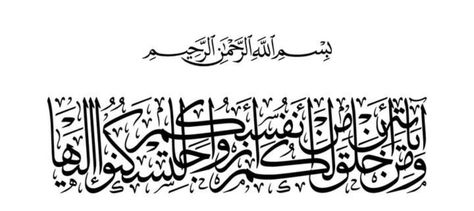 بِسْمِ اللَّهِ الرَّحْمَٰنِ الرَّحِيمِ
وَمِنْ آيَاتِهِ أَنْ خَلَقَ لَكُمْ مِنْ أَنْفُسِكُمْ أَزْوَاجًا لِتَسْكُنُوا إِلَيْهَا